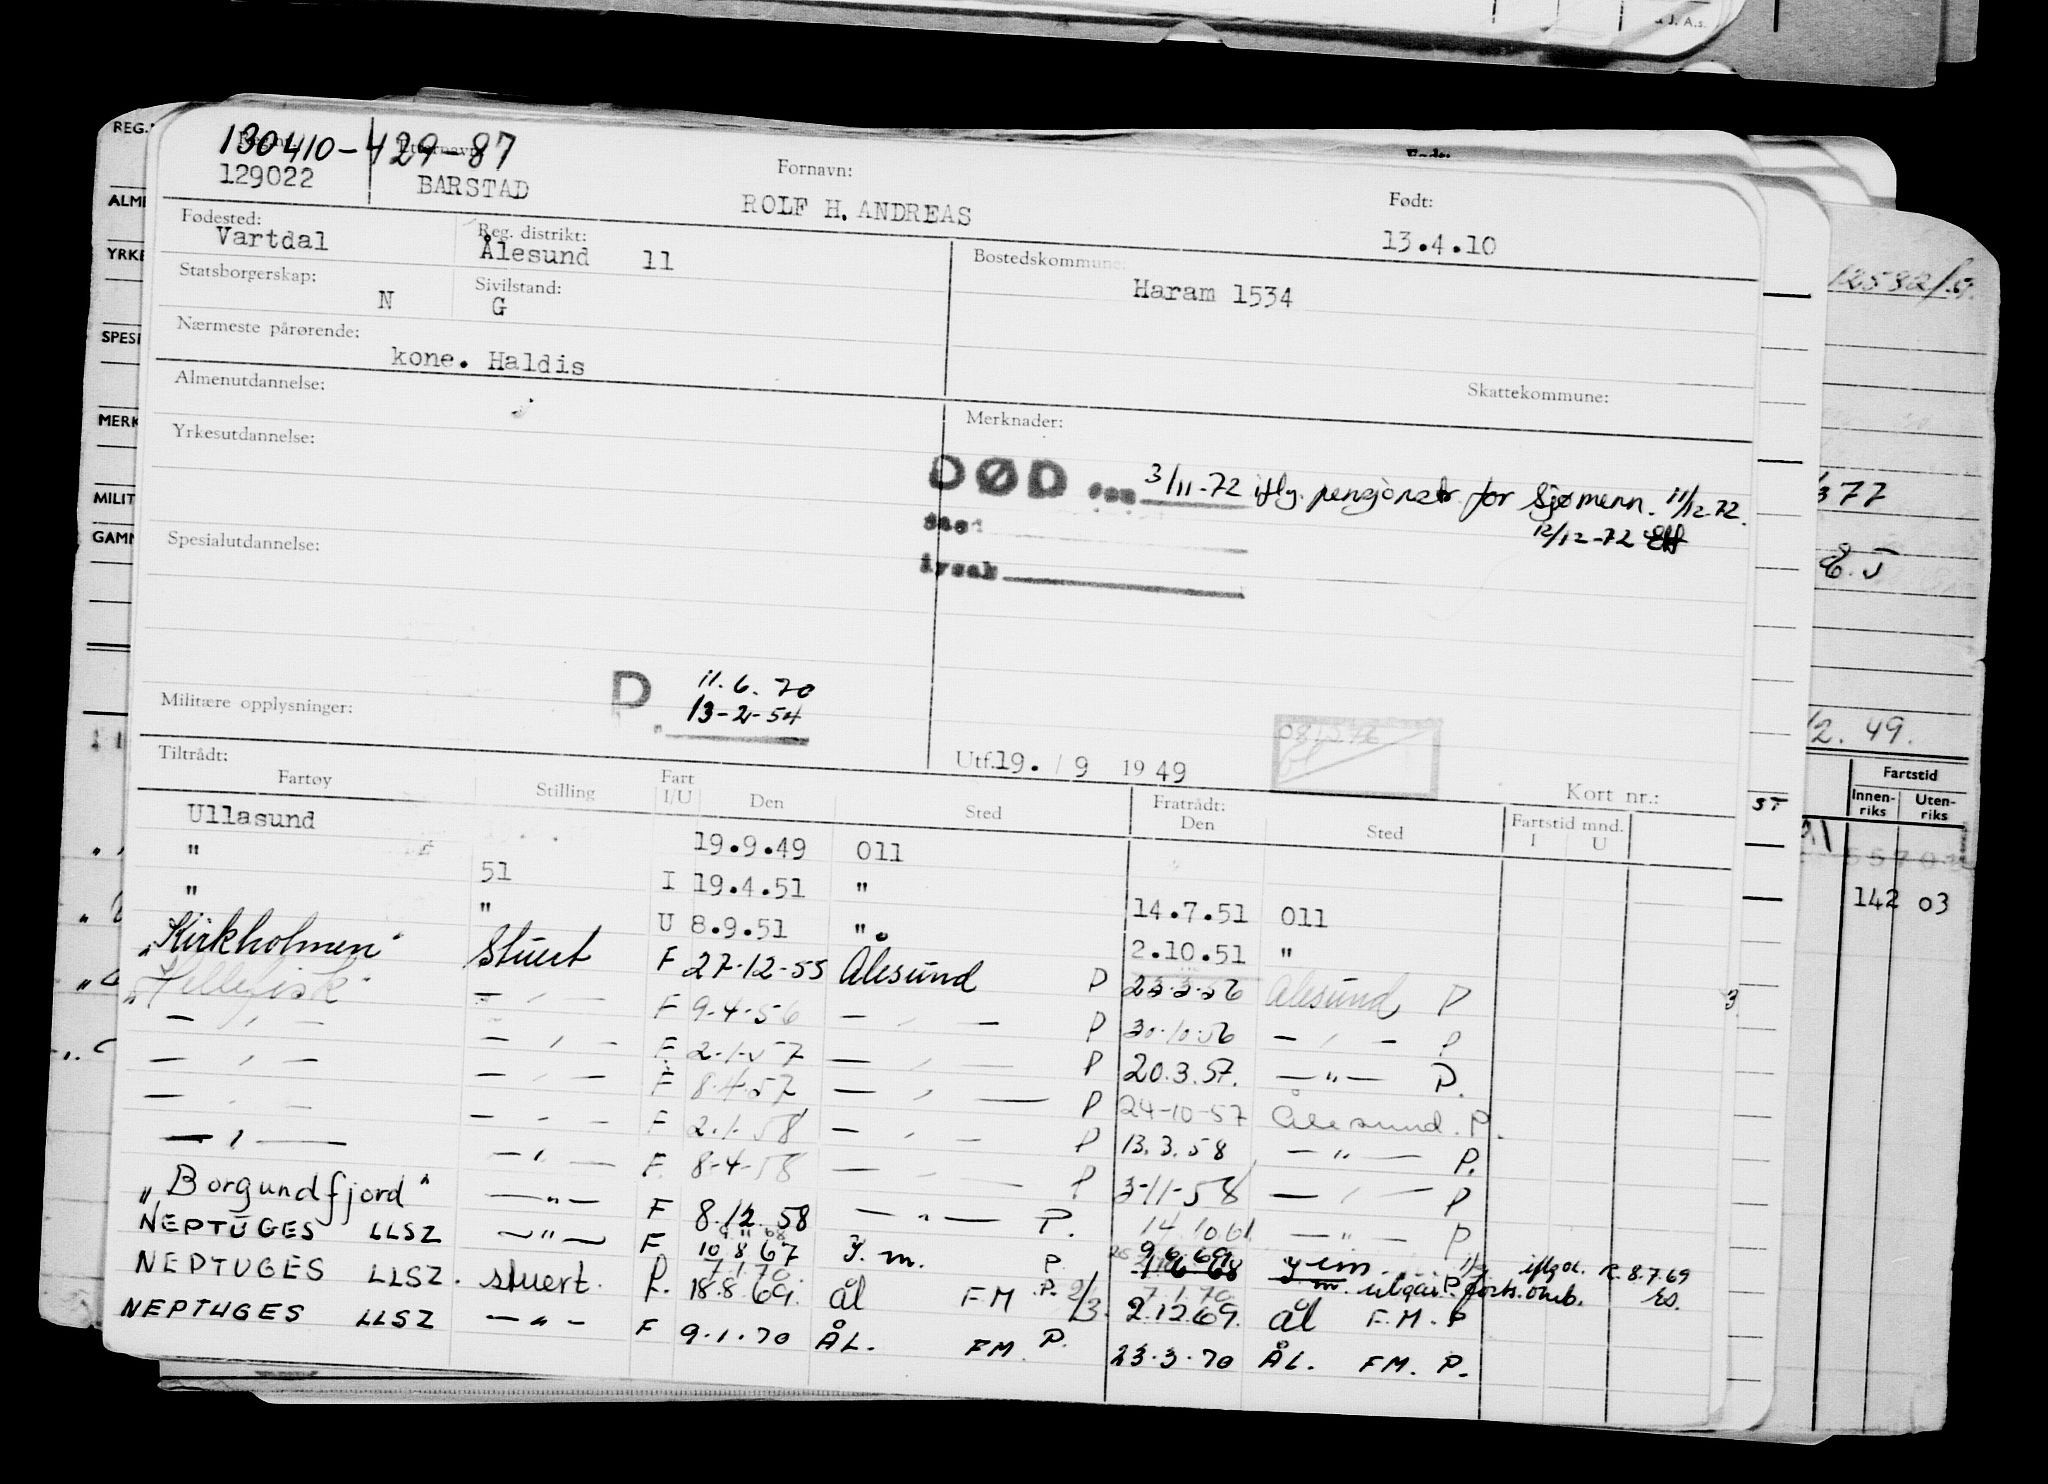 130410-429-87
Reg.nr. Etternavn: Fornavn: Født:
129022 BARSTAD ROLF H. ANDREAS 13.4.10
Fødested: Reg. distrikt: Bostedskommune:
Vartdal Ålesund 11 Haram 1534
Statsborgerskap: Sivilstand:
N G
Nærmeste pårørende:
kone. Haldis
Almenutdannelse: Skattekommune:
Yrkesutdannelse: Merknader:
DØD 3/11-72 iflg. pensjonstr. for Sjømenn. 11/12.72.
12/12-72
Spesialutdannelse:
D 11.6.70
13-2-54
Militære opplysninger:
Utf. 19. / 9 19 49 Kort nr.:
Tiltrådt: Fratrådt: Fartstid mnd.
Fartøy Stilling Fart I/U Den Sted Den Sted I U
Ullasund 19.9.49 011
" 51 I 19.4.51 " 14.7.51 011
" " U 8.9.51 " 2.10.51 "
"Kirkholmen" Stuert F 27-12-55 Ålesund P 23.3.56 Ålesund P
"Hellefisk" — " — F 9-4-56 — " — P 30-10-56 — " — P
— " — — " — F 2-1-57 — " — P 20.3.57. — " — P.
— " — — " — F 8-4-57 — " — P 24-10-57 Ålesund. P.
— " — — " — F 2.1.58 — " — P 13.3.58 — " — P.
— " — — " — F 8-4-58 — " — P 3-11-58 — " — P
"Borgundfjord" — " — F 8.12.58 — " — P. 14.10.61 — " — P
NEPTUGES LLSZ — " — F 10.8.67 Y.m. P 9.6.69 iflg. R. 8.7.69
NEPTUGES LLSZ. stuert. F. 18.8.69. Ål FM P. 2/3. 2.12.69. Ål F.M. P
7.1.70 7.1.70
NEPTUGES LLSZ — " — F 9.1.70 ÅL. FM. P. 23.3.70 ÅL. FM. P.
REG.
ALME
YRKE
SPESI
MERK
MILIT
GAMM
77
E.J
12.49.
Fartstid
Innen-riks Uten-riks
142 03
J. A.s.